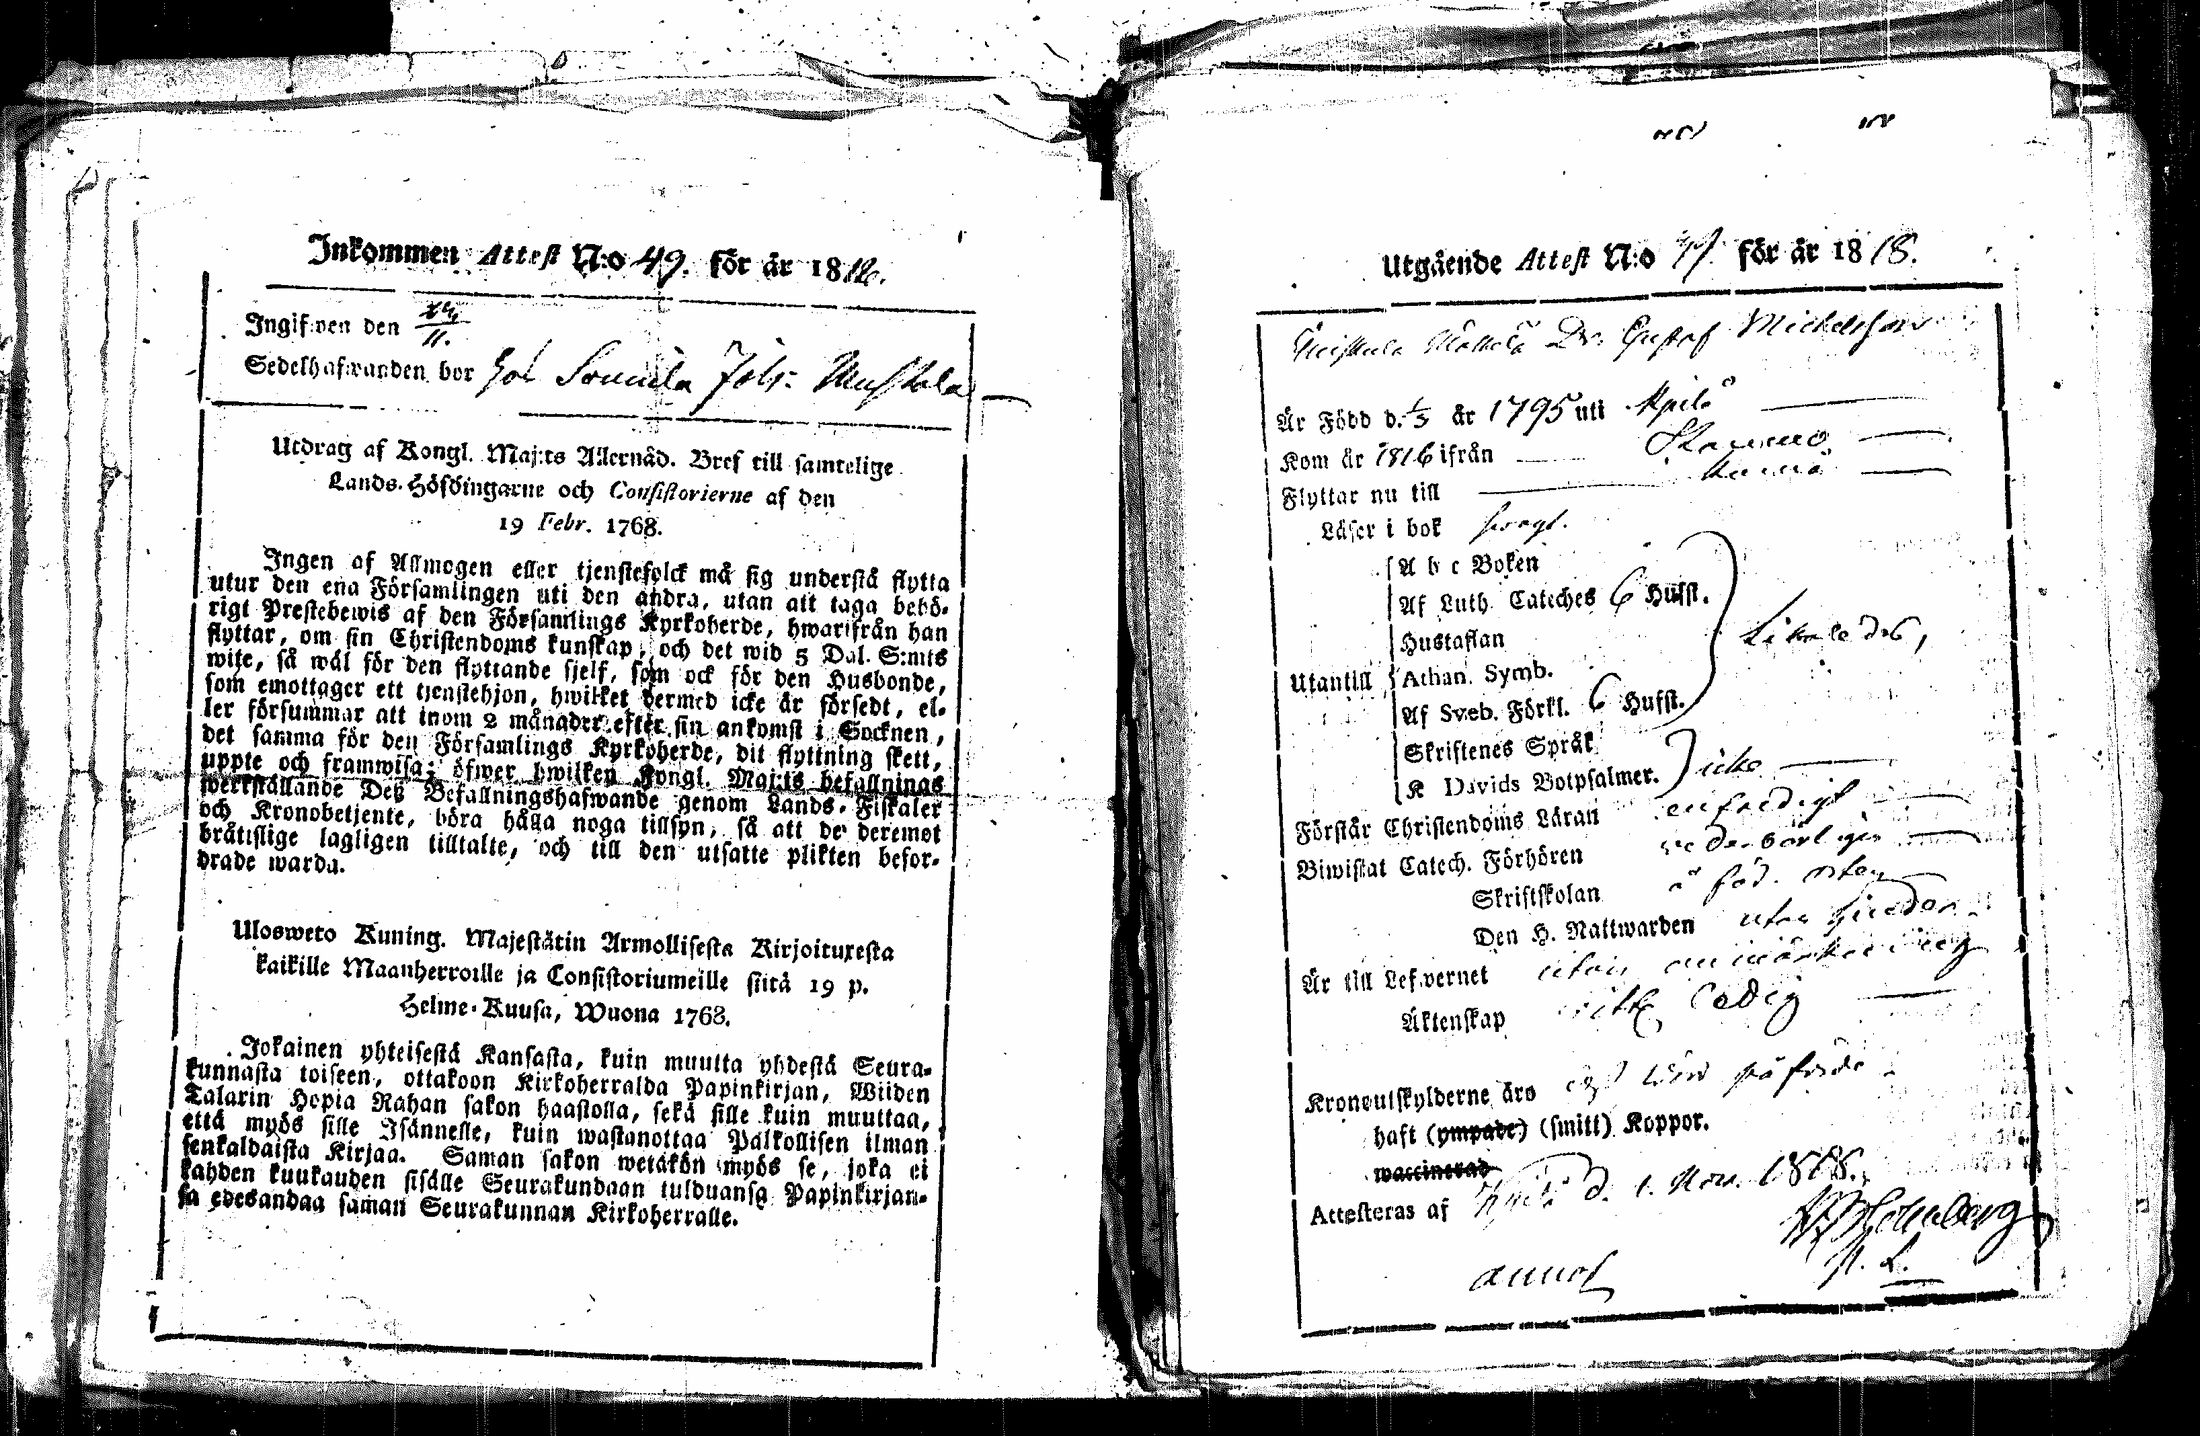 Inkommen Attest N:o 49. för år 1818.
Ingifven den 11.
Sedelhafwanden bor hos Sounila Joh:
Utdrag af Kongl. Maj:ts Allernåd. Bref till samtelige
Lands-Höfdingarne och Consistorierne af den
19 Febr. 1768.
Ingen af Allmogen eller tjenstefolck må sig understå flytta
utur den ena Församlingen uti den andra, utan att taga behö-
rigt Prestebewis af den Församlings Kyrkoherde, hwarifrån han
flyttar, om sin Christendoms kunskap, och det wid 5 Dal. S:mts
wite, så wäl för den flyttande sjelf, som ock för den Husbonde,
som emottager ett tjenstehjon, hwilket dermed icke är försedt, el-
ler försummar att inom 2 månader efter sin ankomst i Socknen,
det samma för den Församlings Kyrkoherde, dit flyttning skett,
uppte och framwisa; öfwer hwilken Kongl. Maj:ts befallnings
werkställande Deß Befallningshafwande genom Lands-Fiskaler
och Kronobetjente, böra hålla noga tillsyn, så att de deremot
bråtislige lagligen tilltalte, och till den utsatte plikten befor-
drade warda.
Ulosweto Kuning. Majestätin Armollisesta Kirjoituxesta
kaikille Maanherroille ja Consistoriumeille siitä 19 p.
Helme-Kuusa, Wuona 1768.
Jokainen yhteisestä Kansasta, kuin muutta yhdestä Seura-
kunnasta toiseen, ottakoon Kirkoherralda Papinkirjan, Wiiden
Talarin Hopia Rahan sakon haastolla, sekä sille kuin muuttaa,
että myös sille Isännelle, kuin wastanottaa Palkollisen ilman
senkaldaista Kirjaa. Saman sakon wetäkön myös se, joka ei
kahden kuukauden sisälle Seurakundaan tulduansa Papinkirjan-
sa edesandaa saman Seurakunnan Kirkoherralle.
Utgående Attest N:o för år 1818.
Dr. Gustaf Michelsson
Är Född d. 1/3 år 1795 uti Kyilö
Kom år 1816 ifrån
Flyttar nu till
Läser i bok
A b c Boken
Af Luth. Cateches 6 Hufst.
Hustaflan
Utantill Athan. Symb.
Af Sveb. Förkl. 6 Hufst.
Likaledes,
Skriftenes Språk
K Davids Botpsalmer. icke
Förstår Christendoms Läran enfaldigt
Biwistat Catech. Förhören vederbörligen
Skriftskolan å föd. orten
Den H. Nattwarden utan hinder
Är till Lefwernet utan anmärkning
Äktenskap ledig
Kronoutskylderne äro
haft (ympade) (smitt) Koppor.
waccinerad
Attesteras af d. 1. Nov. 1818.
annot